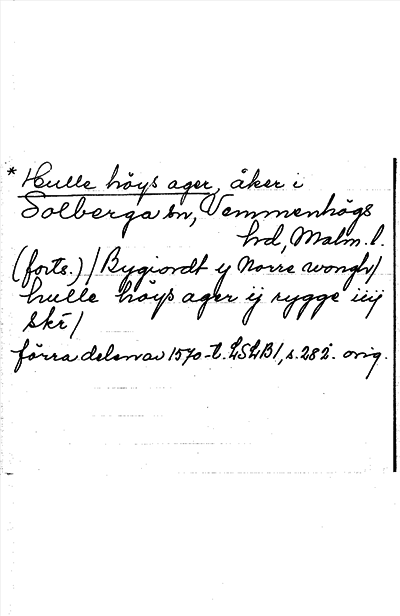 * Hulle höys ager, åker i
Solberga sn, Vemmenhögs
hd, Malm. l.
(forts.) / Bygiordt y Norre wongh /
hulle höys ager ij rygge iiij
skr /
förra delen av 1570-t. LSLB 1, s. 282. orig.